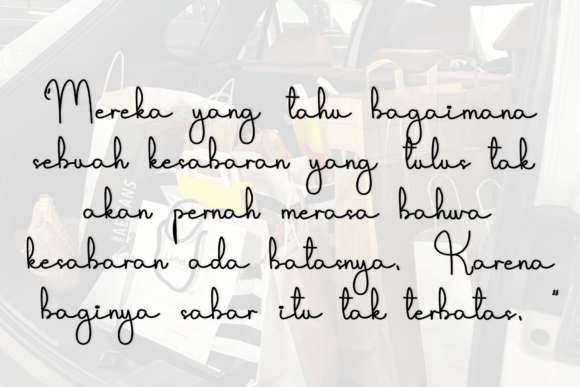 "Mereka yang tahu bagaimana
sebuah kesabaran yang tulus tak
akan pernah merasa bahwa
kesabaran ada batasnya. Karena
baginya sabar itu tak terbatas. "